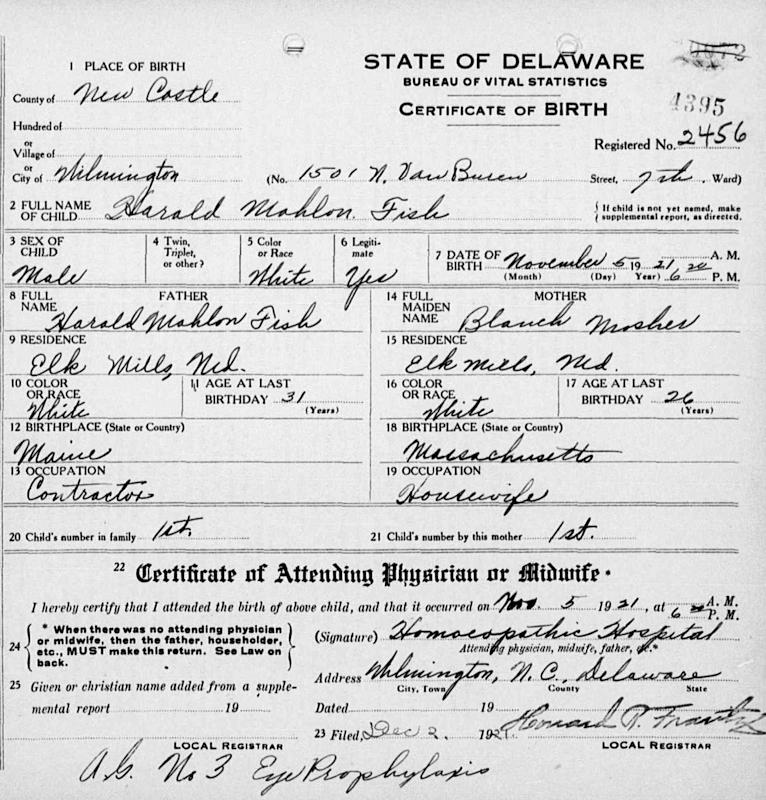 1 PLACE OF BIRTH
STATE OF DELAWARE
BUREAU OF VITAL STATISTICS
CERTIFICATE OF BIRTH
4395
County of New Castle
Hundred of
Registered No. 2456
or
Village of
or
City of Wilmington (No. 1501 N. Van Buren Street, 7th. Ward)
2 FULL NAME OF CHILD Harald Mahlon Fish { If child is not yet named, make supplemental report, as directed.
3 SEX OF CHILD Male
4 Twin, Triplet, or other?
5 Color or Race White
6 Legitimate Yes
7 DATE OF BIRTH November 5 19 21 6 20 A. M. P. M.
(Month) (Day) Year)
8 FULL NAME FATHER Harald Mahlon Fish
14 FULL MAIDEN NAME MOTHER Blanch Mosher
9 RESIDENCE Elk Mills, Md.
15 RESIDENCE Elk Mills, Md.
10 COLOR OR RACE White
11 AGE AT LAST BIRTHDAY 31 (Years)
16 COLOR OR RACE White
17 AGE AT LAST BIRTHDAY 26 (Years)
12 BIRTHPLACE (State or Country) Maine
18 BIRTHPLACE (State or Country) Massachusetts
13 OCCUPATION Contractor
19 OCCUPATION Housewife
20 Child's number in family 1st.
21 Child's number by this mother 1st.
22 Certificate of Attending Physician or Midwife*
I hereby certify that I attended the birth of above child, and that it occurred on Nov. 5 19 21, at 6 20 A. M. P. M.
24 { * When there was no attending physician or midwife, then the father, householder, etc., MUST make this return. See Law on back. }
(Signature) Homoeopathic Hospital
Attending physician, midwife, father, etc.*
Address Wilmington, N. C., Delaware
City, Town County State
25 Given or christian name added from a supplemental report 19
Dated 19
23 Filed, Dec 2. 1921. Howard T. Frantz
LOCAL REGISTRAR
LOCAL REGISTRAR
A.G. No 3 Eye Prophylaxis